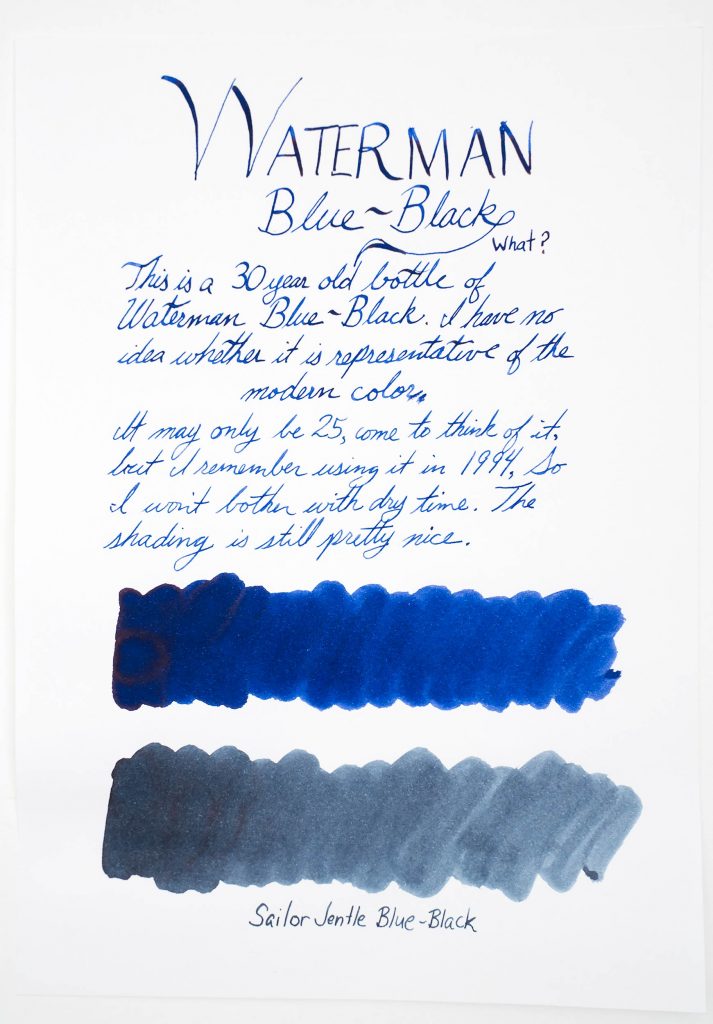 WATERMAN
Blue~Black
What?
This is a 30 year old bottle of
Waterman Blue~Black. I have no
idea whether it is representative of the
modern color.
It may only be 25, come to think of it,
but I remember using it in 1994, So
I won't bother with dry time. The
shading is still pretty nice.
Sailor Jentle Blue-Black